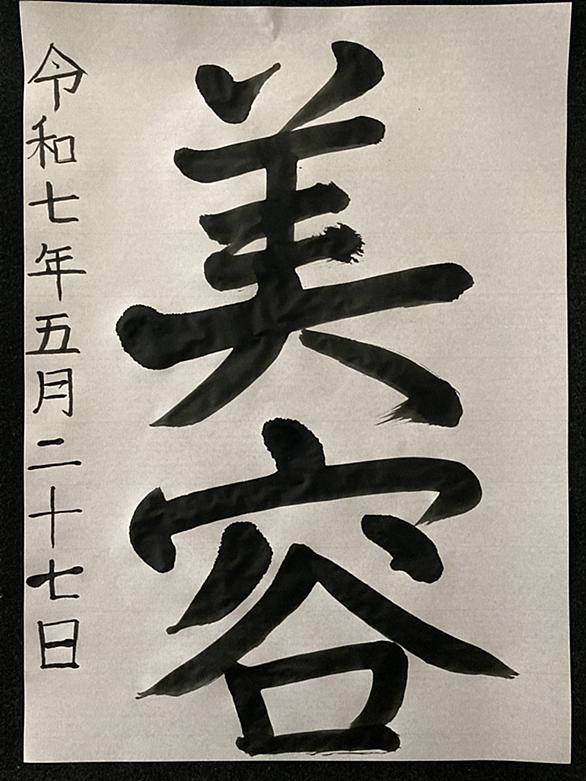 美容
令和七年五月二十七日